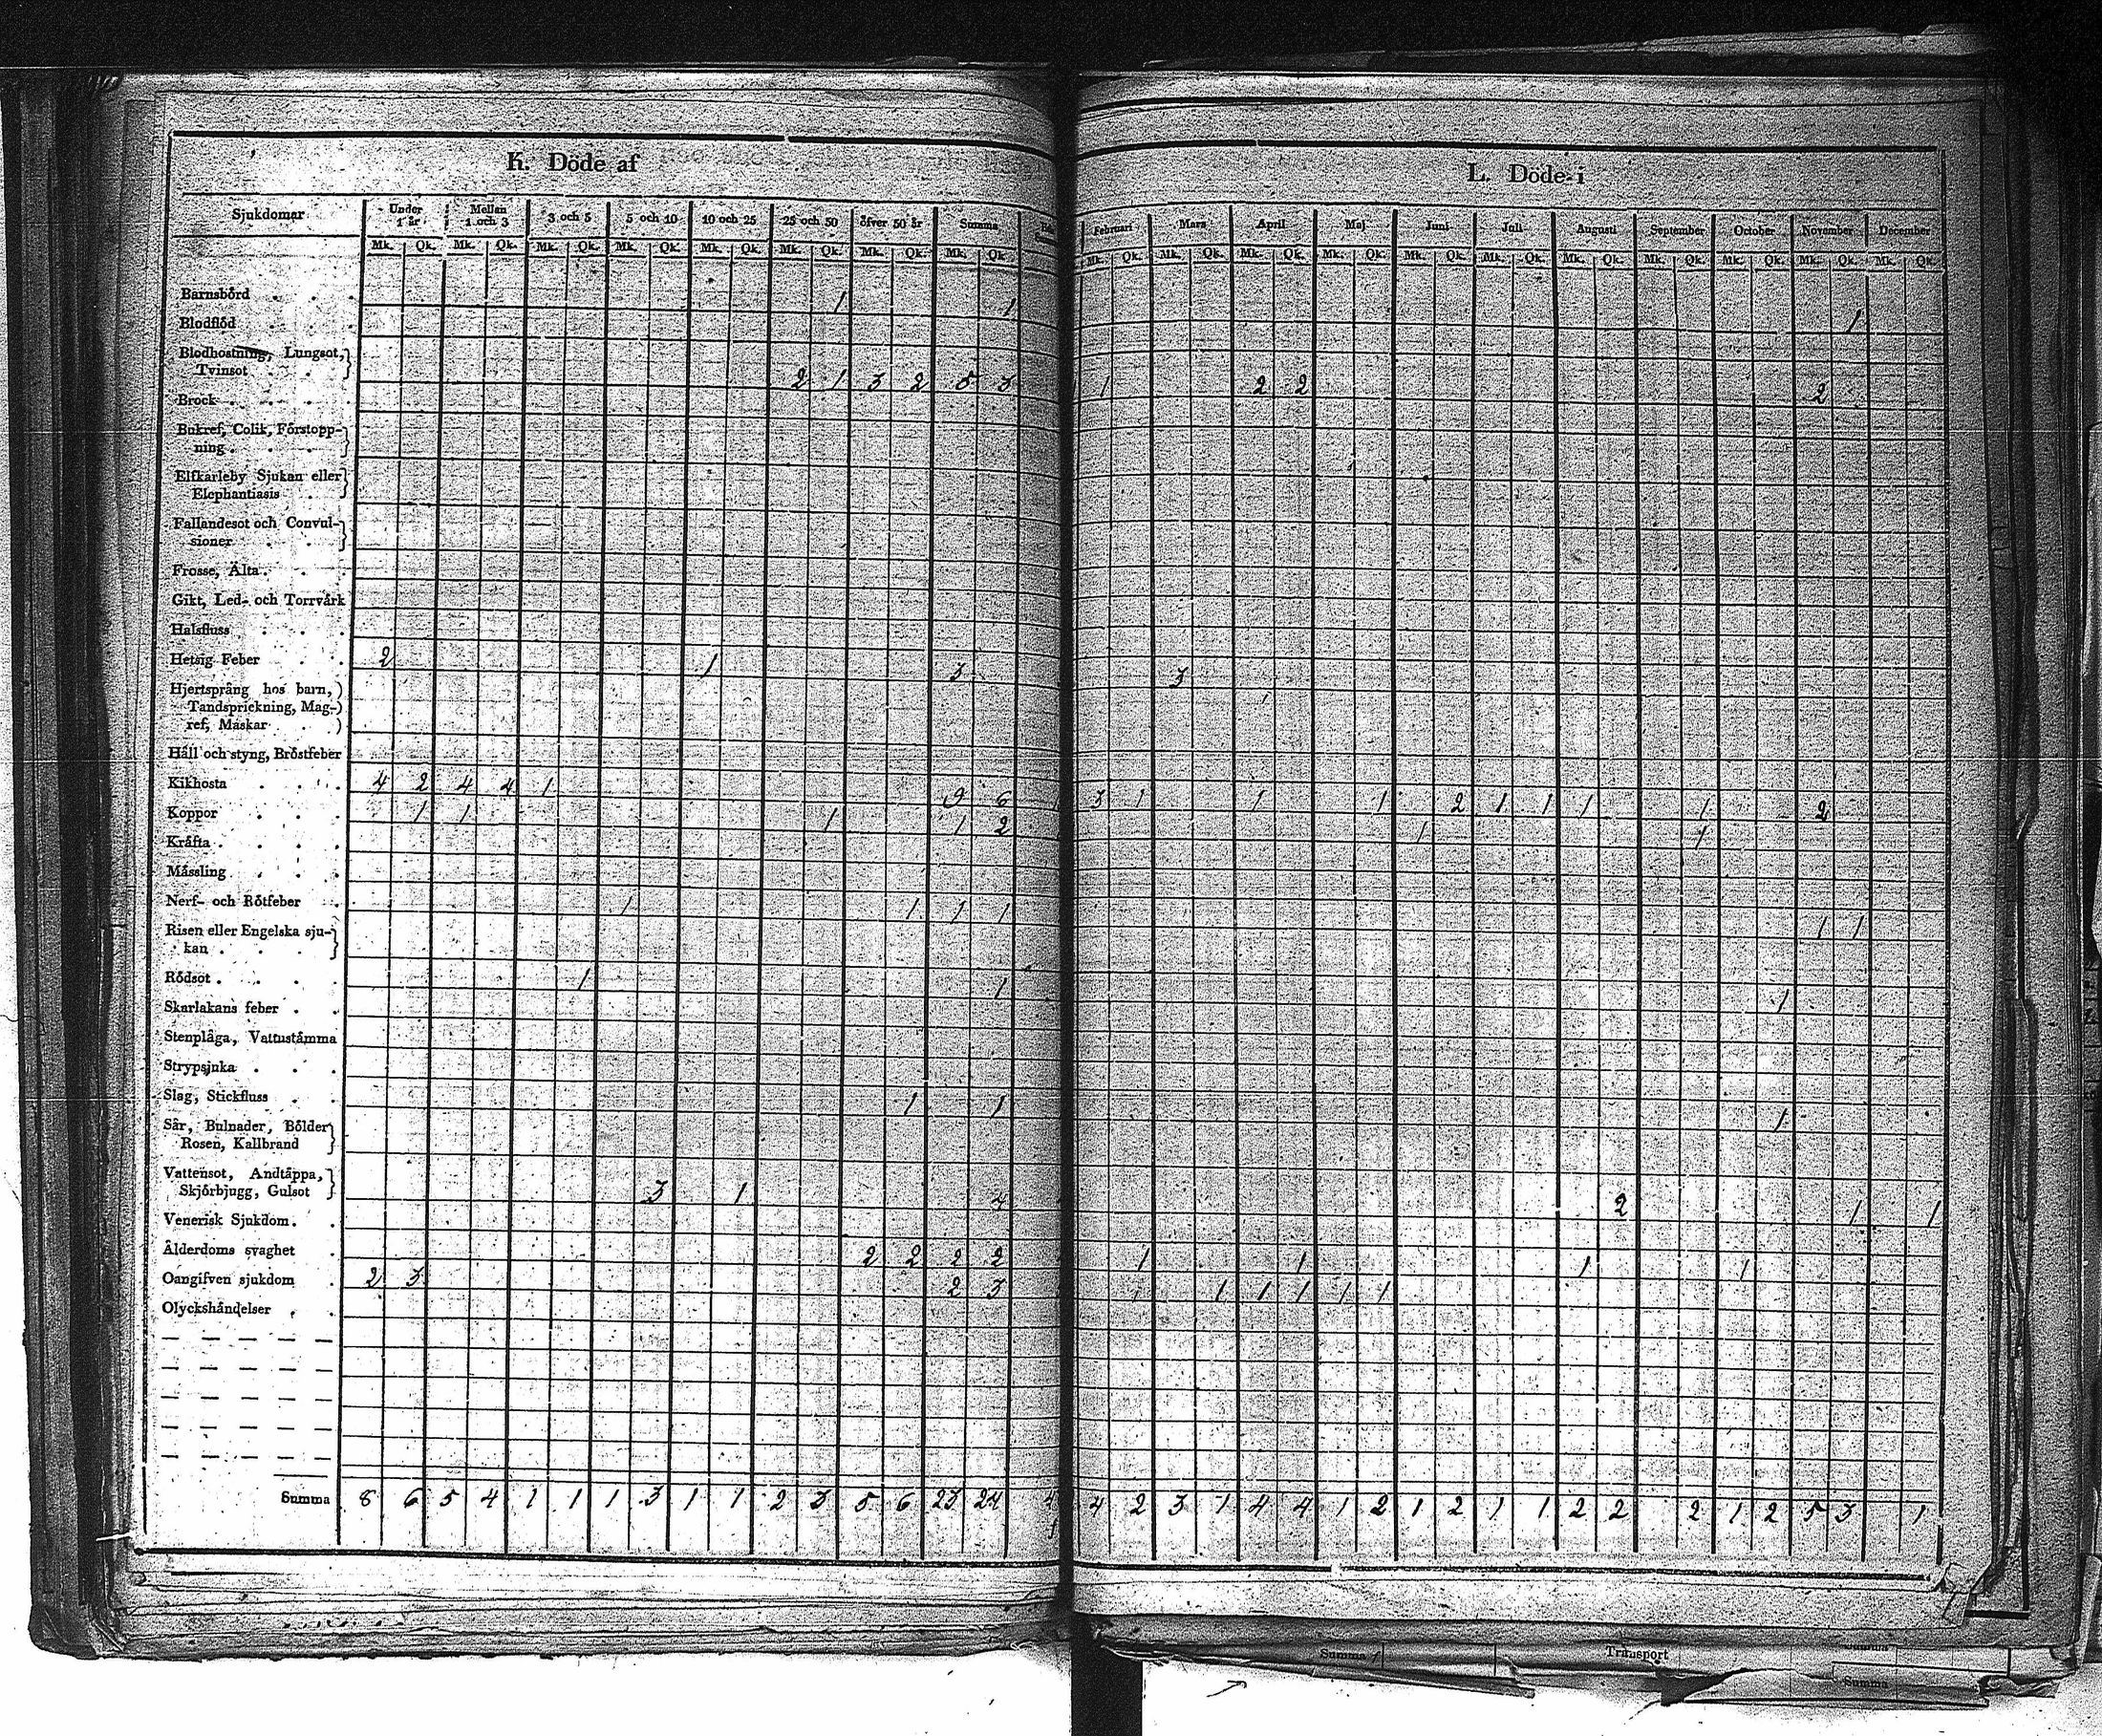 K. Döde af
Sjukdomar Under 1 år. Mellan 1 och 3 3 och 5 5 och 10 10 och 25 25 och 50 öfver 50 år Summa
Mk. Qk. Mk. Qk. Mk. Qk. Mk. Qk. Mk. Qk. Mk. Qk. Mk. Qk. Mk. Qk.
Barnsbörd 1 1
Blodflöd
Blodhostning, Lungsot,
Tvinsot 2 1 3 2 5 3
Brock
Bukref, Colik, Förstopp-
ning
Elfkarleby Sjukan eller
Elephantiasis
Fallandesot och Convul-
sioner
Frosse, Älta
Gikt, Led- och Torrvärk
Halsfluss
Hetsig Feber 2 1 3
Hjertsprång hos barn,
Tandsprickning, Mag-
ref, Maskar
Håll och styng, Bröstfeber
Kikhosta 4 2 4 4 1 9 6
Koppor 1 1 1 1 2
Kräfta
Mässling
Nerf- och Rötfeber 1 1 1 1
Risen eller Engelska sju-
kan
Rödsot 1 1
Skarlakans feber
Stenplåga, Vattustämma
Strypsjuka
Slag, Stickfluss 1 1
Sår, Bulnader, Bölder
Rosen, Kallbrand
Vattensot, Andtäppa,
Skjörbjugg, Gulsot 3 1 4
Venerisk Sjukdom
Ålderdoms svaghet 2 2 2 2
Oangifven sjukdom 2 3 2 3
Olyckshändelser
Summa 8 6 5 4 1 1 1 3 1 1 2 3 5 6 23 24
L. Döde i
Februari Mars April Maj Juni Juli Augusti September October November December
Mk. Qk. Mk. Qk. Mk. Qk. Mk. Qk. Mk. Qk. Mk. Qk. Mk. Qk. Mk. Qk. Mk. Qk. Mk. Qk. Mk. Qk.
1
1 2 2 2
3
3 1 1 1 2 1 1 1 1 2
1 1
1 1
1
1
2 1 1
1 1 1 1
1 1 1 1 1 1
4 2 3 1 4 4 1 2 1 2 1 1 2 2 2 1 2 5 3 1
Summa Transport
Summa